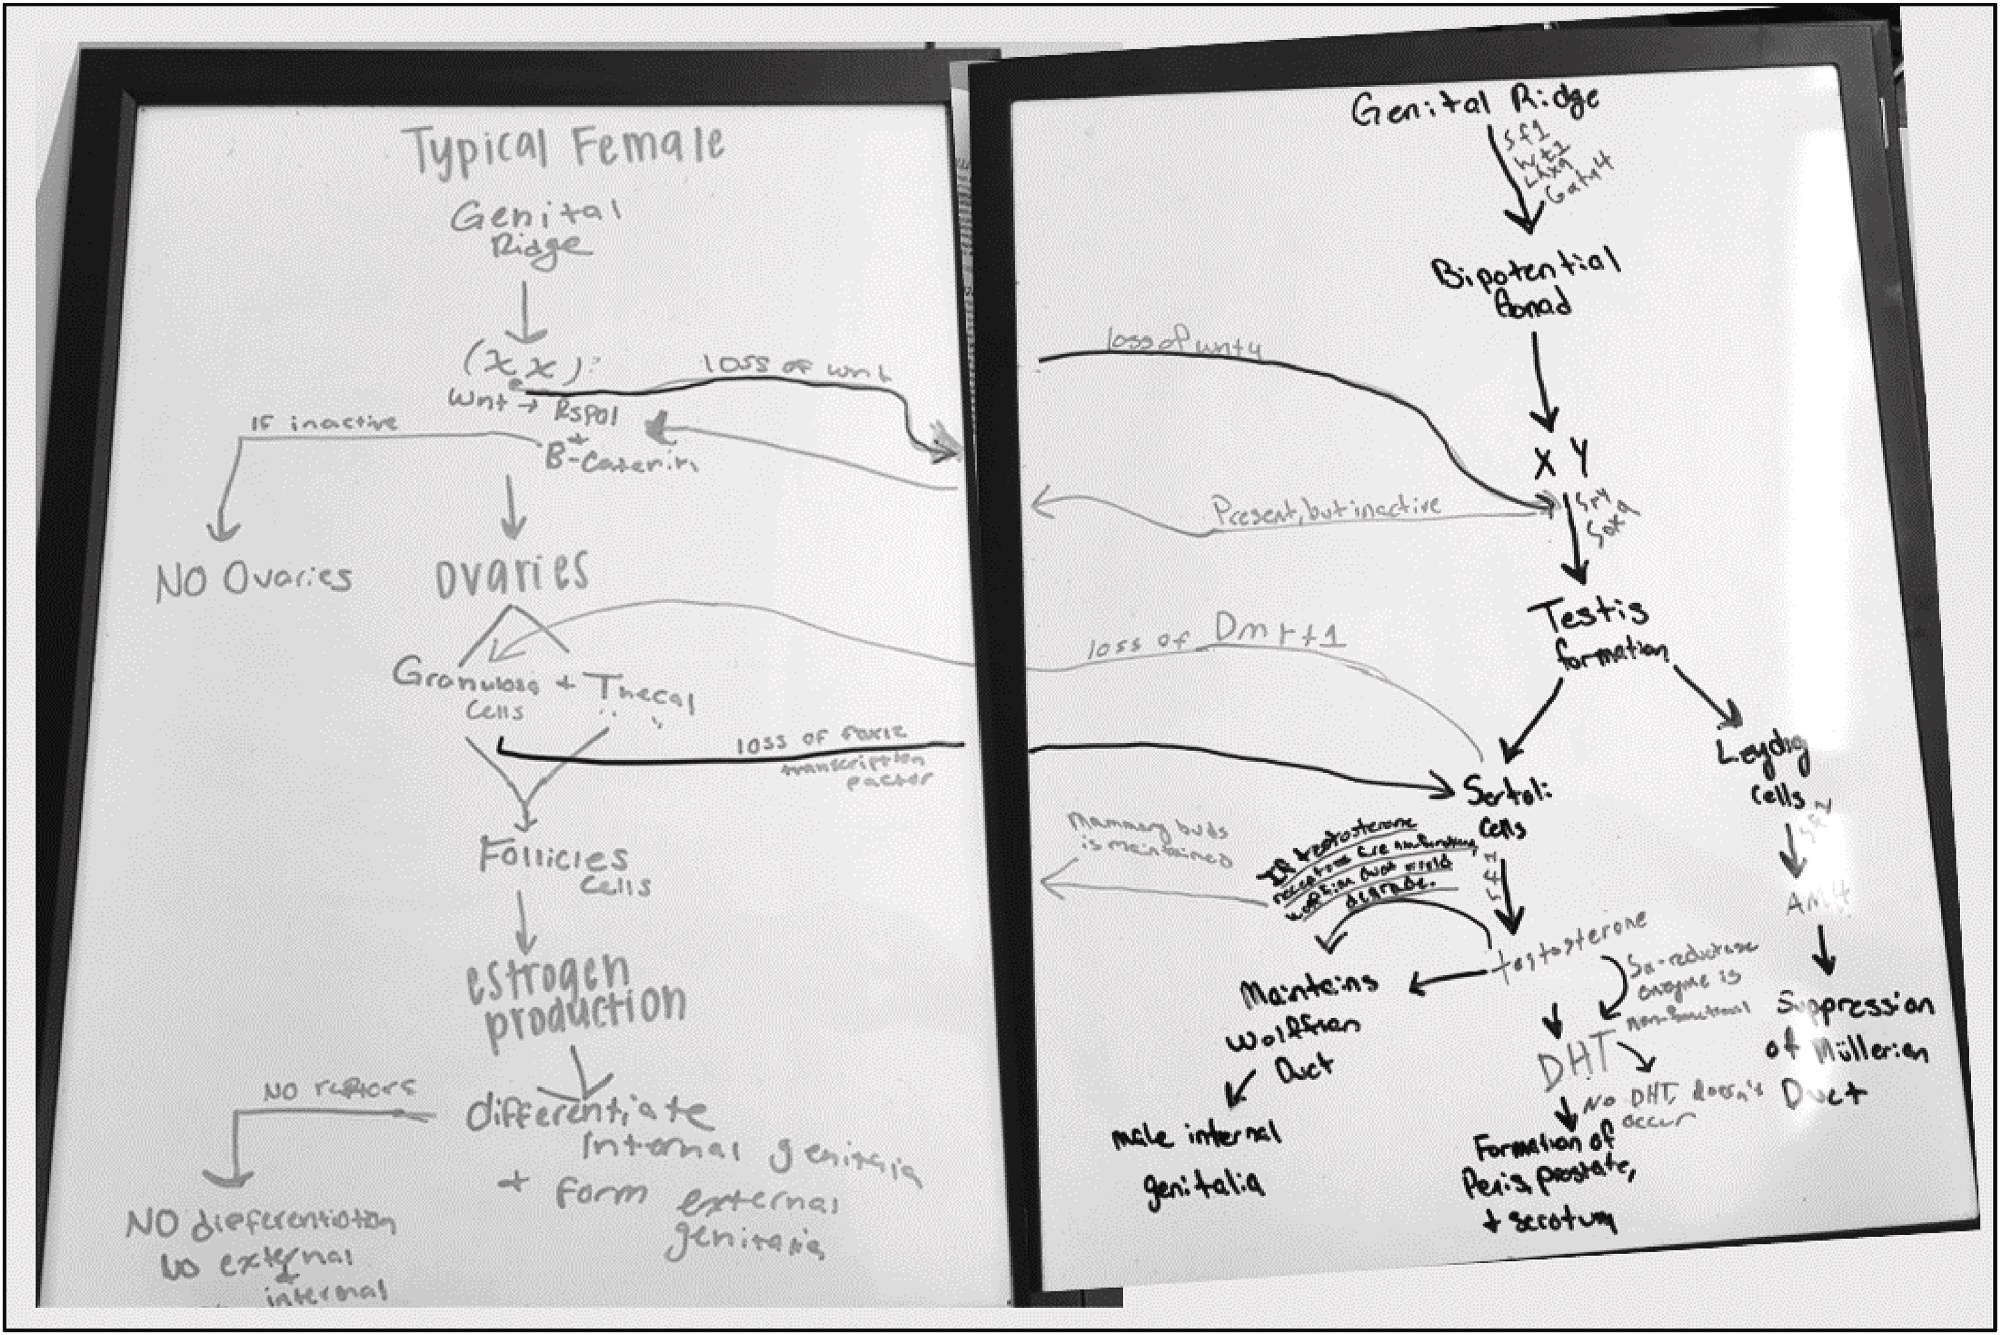 Typical Female
Genital
Ridge
(XX)
Wnt → Rspo1
+
B-Catenin
loss of wnt
IF inactive
NO Ovaries
OVARIES
Granulosa + Thecal
Cells " "
loss of
transcription
factor
Follicles
Cells
estrogen
production
NO
differentiate
internal genitalia
+ form external
genitalia
NO
No external
+
internal
Genital Ridge
Sf1
Wt1
Lhx9
Gata4
Bipotential
Gonad
loss of wnt4
X Y
Sry
Sox9
Present, but inactive
Testis
formation
loss of Dmrt1
Sertoli
Cells
Leydig
cells
Mammary buds
is maintained
If testosterone
receptors are
degrade.
testosterone
AMH
5α-reductase
enzyme is
non-functional
Maintains
Wolffian
Duct
male internal
genitalia
DHT
No DHT, doesn't
occur
Formation of
Penis, prostate,
+ scrotum
Suppression
of Müllerian
Duct